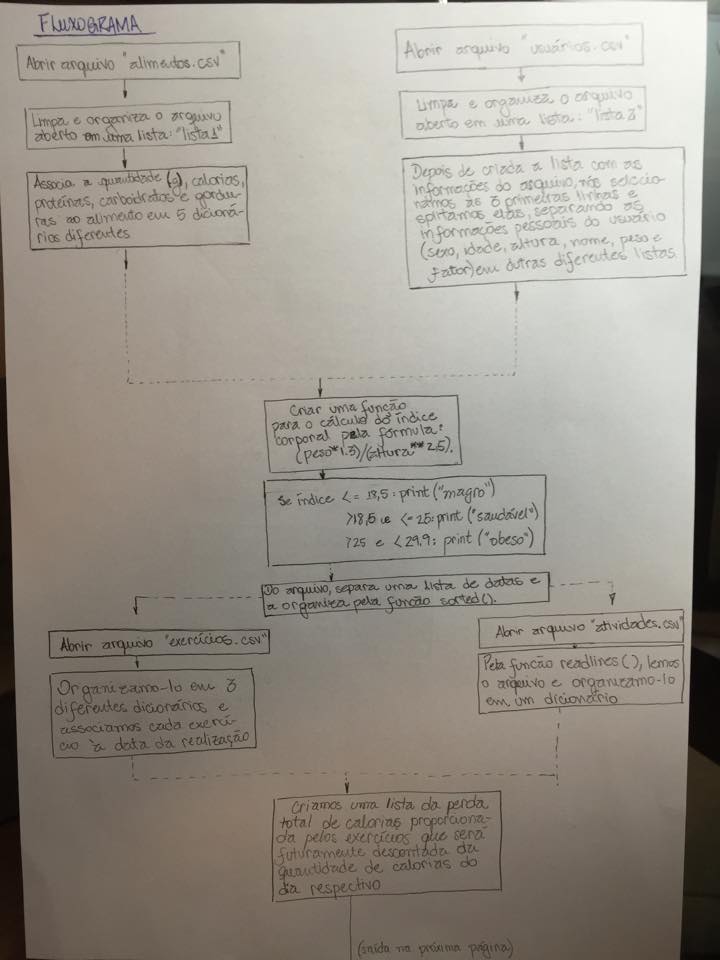 FLUXOGRAMA
Abrir arquivo "alimentos.csv"
Limpa e organiza o arquivo
aberto em uma lista: "lista1"
Associa a quantidade (g), calorias,
proteínas, carboidratos e gordu-
ras ao alimento em 5 dicioná-
rios diferentes
Abrir arquivo "usuários.csv"
Limpa e organiza o arquivo
aberto em uma lista: "lista3"
Depois de criada a lista com as
informações do arquivo, nós selecio-
namos as 6 primeiras linhas e
splitamos elas, separando as
informações pessoais do usuário
(sexo, idade, altura, nome, peso e
fator) em outras diferentes listas.
Criar uma função
para o cálculo do índice
corporal pela fórmula:
(peso*1.3)/(altura**2.5).
Se índice <= 18,5: print ("magro")
>18,5 e <= 25: print ("saudável")
>25 e <29.9: print ("obeso")
Do arquivo, separa uma lista de datas e
a organiza pela função sorted().
Abrir arquivo "exercícios.csv"
Organizamo-lo em 3
diferentes dicionários e
associamos cada exercí-
cio à data da realização
Abrir arquivo "atividades.csv"
Pela função readlines(), lemos
o arquivo e organizamo-lo
em um dicionário
Criamos uma lista da perda
total de calorias proporciona-
da pelos exercícios que será
futuramente descontada da
quantidade de calorias do
dia respectivo
(saída na próxima página)